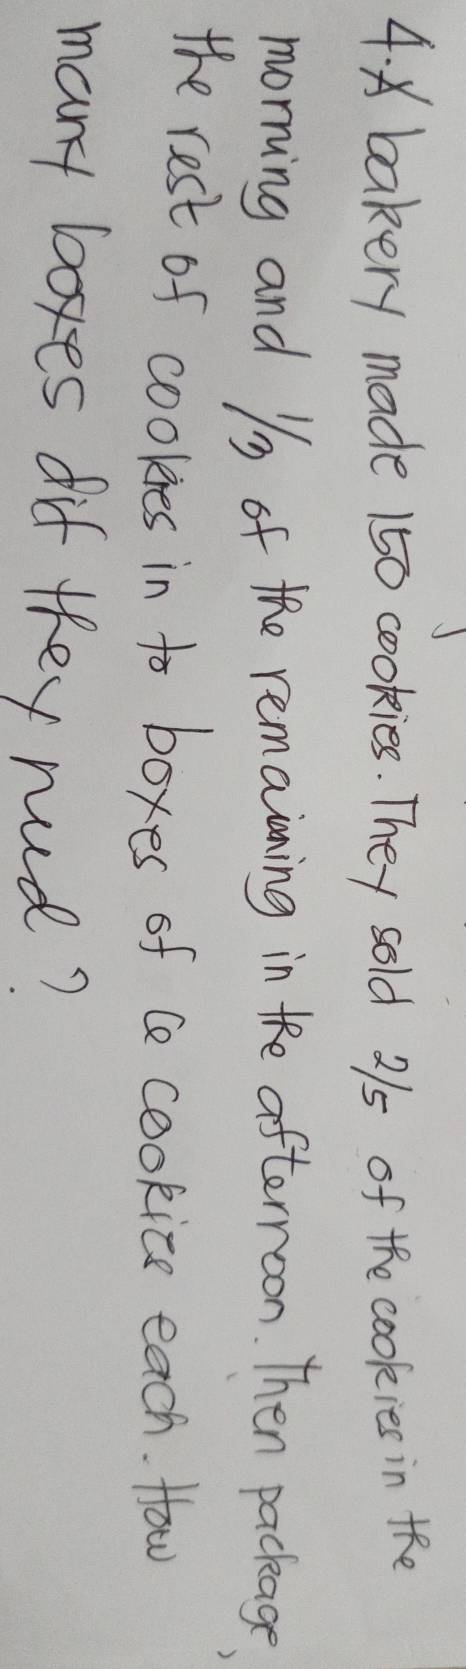 4. A bakery made 150 cookies. They sold 2/5 of the cookies in the
morning and 1/3 of the remaining in the afternoon. Then package
the rest of cookies in to boxes of 6 cookies each. How
many boxes did they need?